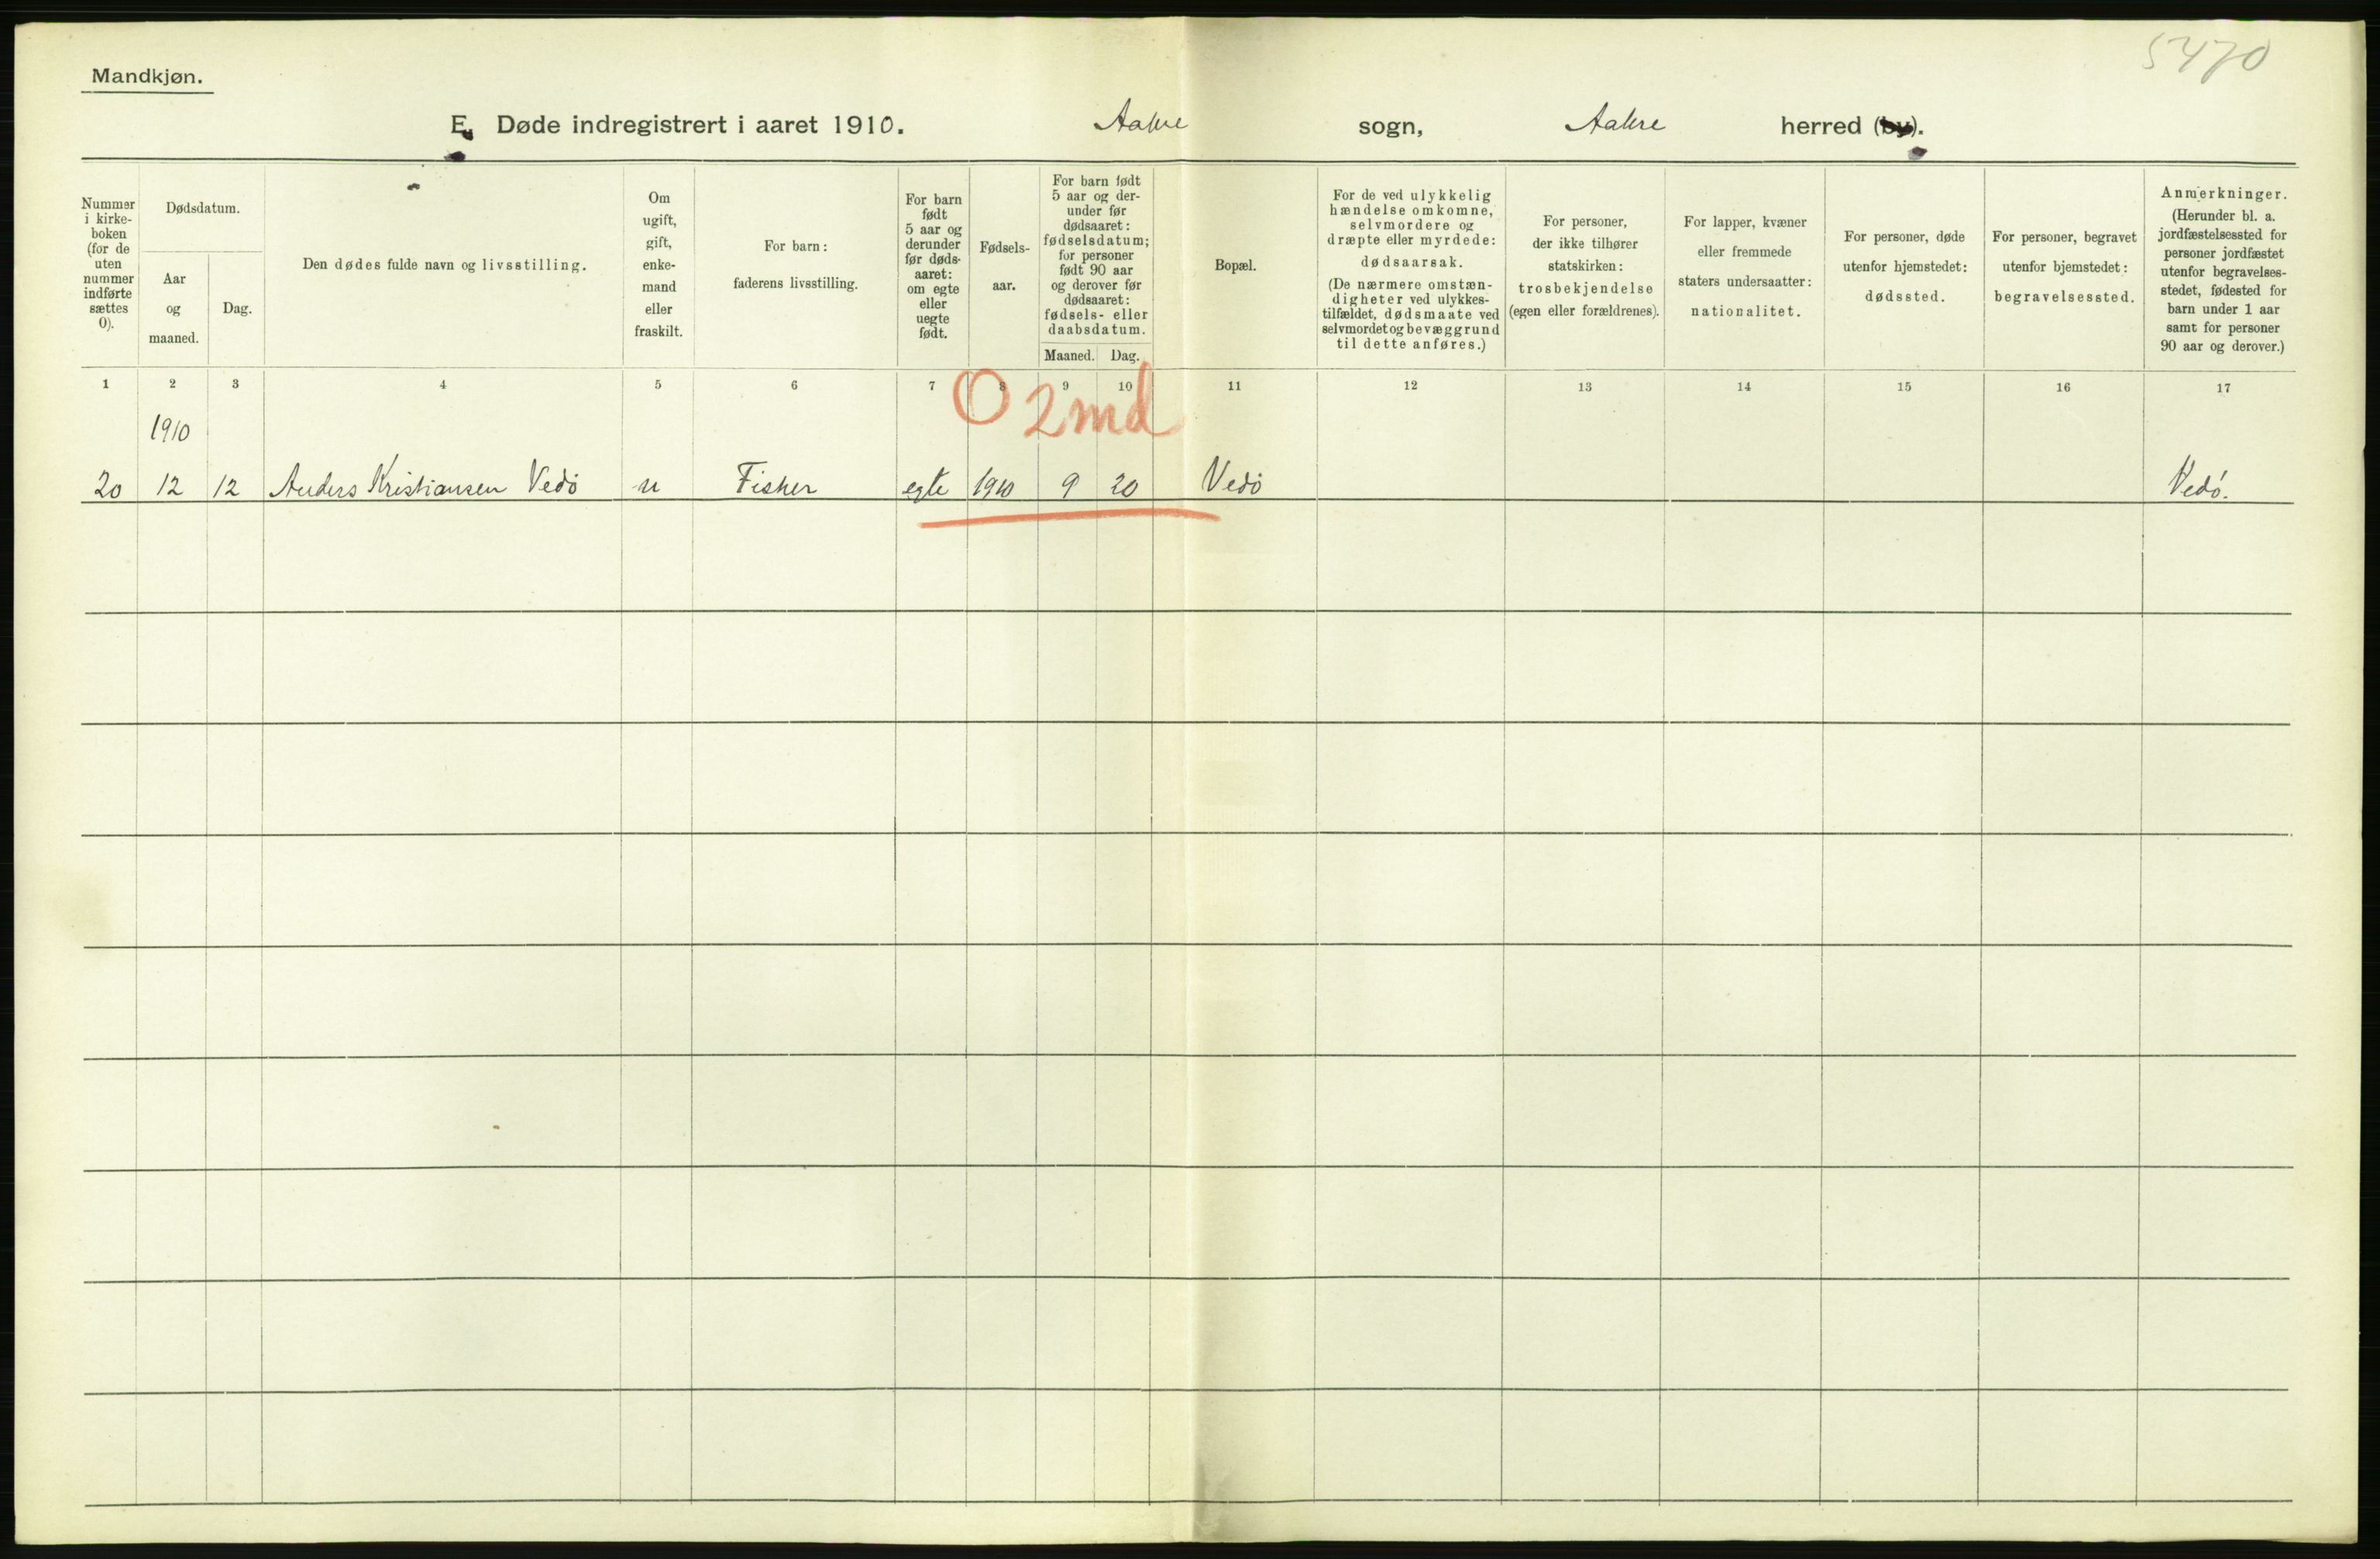 5470
Mandkjøn.
E. Døde indregistrert i aaret 1910. Aakre sogn, Aakre herred (by).
Nummer i kirke- boken (for de uten nummer indførte sættes 0).
Dødsdatum.
Aar og maaned.
Dag.
Den dødes fulde navn og livsstilling.
Om ugift, gift, enke- mand eller fraskilt.
For barn: faderens livsstilling.
For barn født 5 aar og derunder før døds- aaret: om egte eller uegte født.
Fødsels- aar.
For barn født 5 aar og der- under før dødsaaret: fødselsdatum; for personer født 90 aar og derover før dødsaaret: fødsels- eller daabsdatum.
Maaned. Dag.
Bopæl.
For de ved ulykkelig hændelse omkomne, selvmordere og dræpte eller myrdede: dødsaarsak. (De nærmere omstæn- digheter ved ulykkes- tilfældet, dødsmaate ved selvmordet og bevæggrund til dette anføres.)
For personer, der ikke tilhører statskirken: trosbekjendelse (egen eller forældrenes).
For lapper, kvæner eller fremmede staters undersaatter: nationalitet.
For personer, døde utenfor hjemstedet: dødssted.
For personer, begravet utenfor hjemstedet: begravelsessted.
Anmerkninger. (Herunder bl. a. jordfæstelsessted for personer jordfæstet utenfor begravelses- stedet, fødested for barn under 1 aar samt for personer 90 aar og derover.)
1 2 3 4 5 6 7 8 9 10 11 12 13 14 15 16 17
0 2md
1910
20 12 12 Anders Kristiansen Vedö u Fisker egte 1910 9 20 Vedö Vedö.